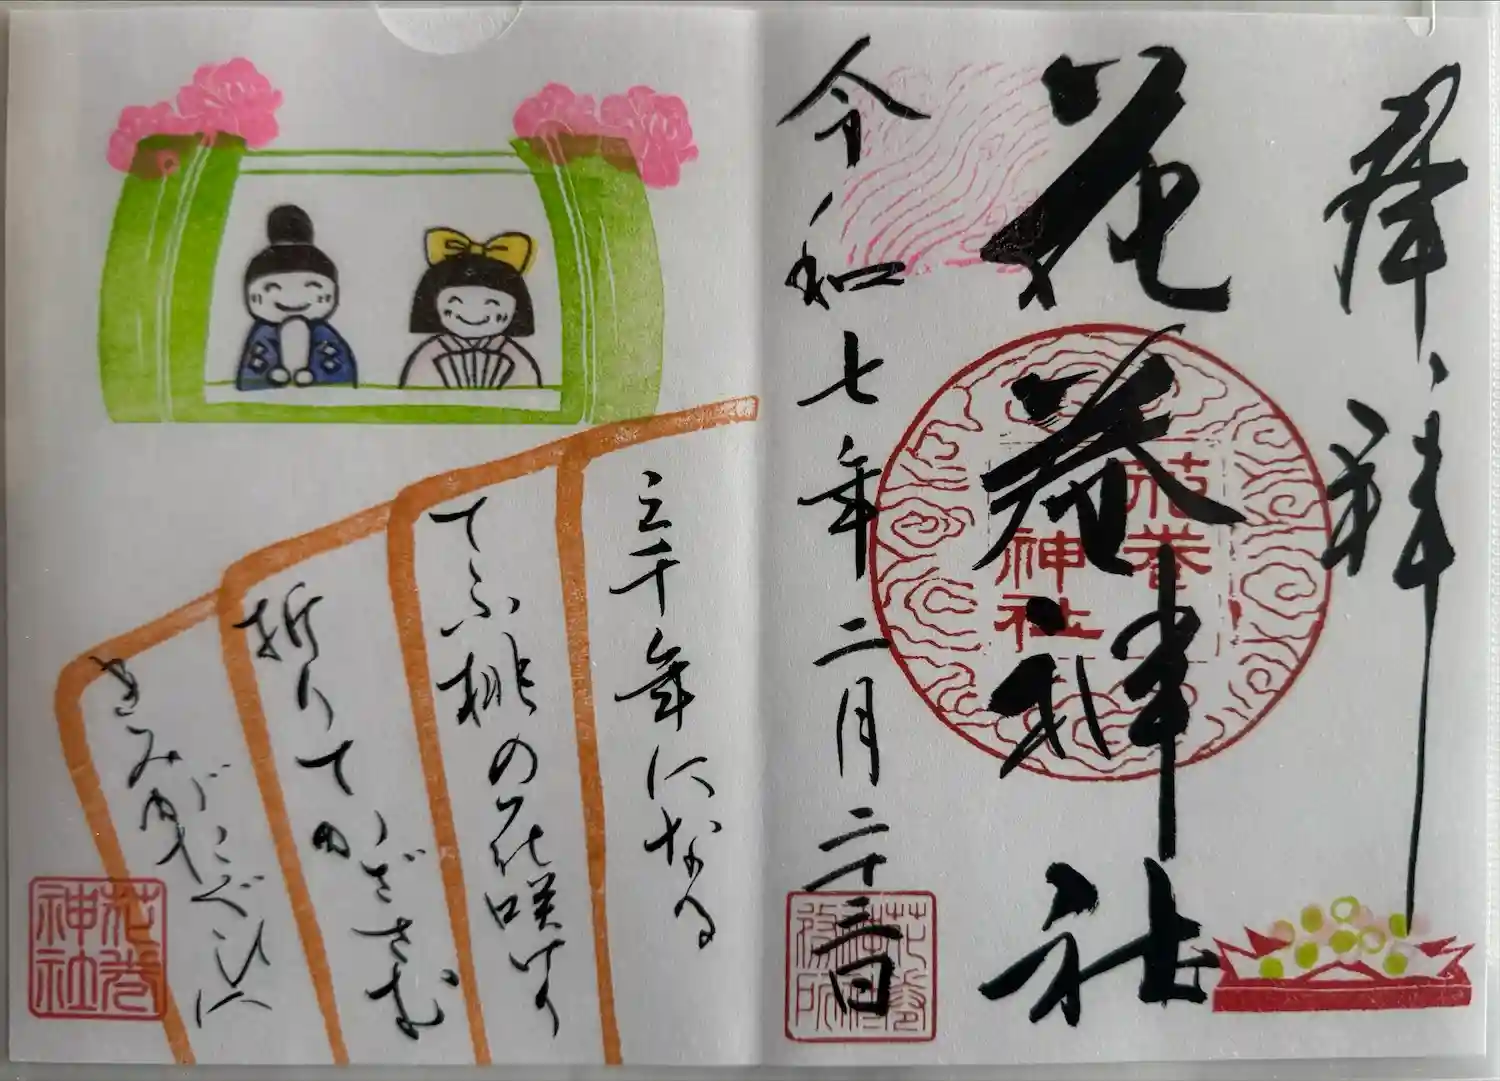 奉拝
花巻神社
花巻
神社
令和七年二月二十三日
三千年になる
てふ桃の花咲けり
折りてかざさむ
きみがたぐひに
花巻
神社